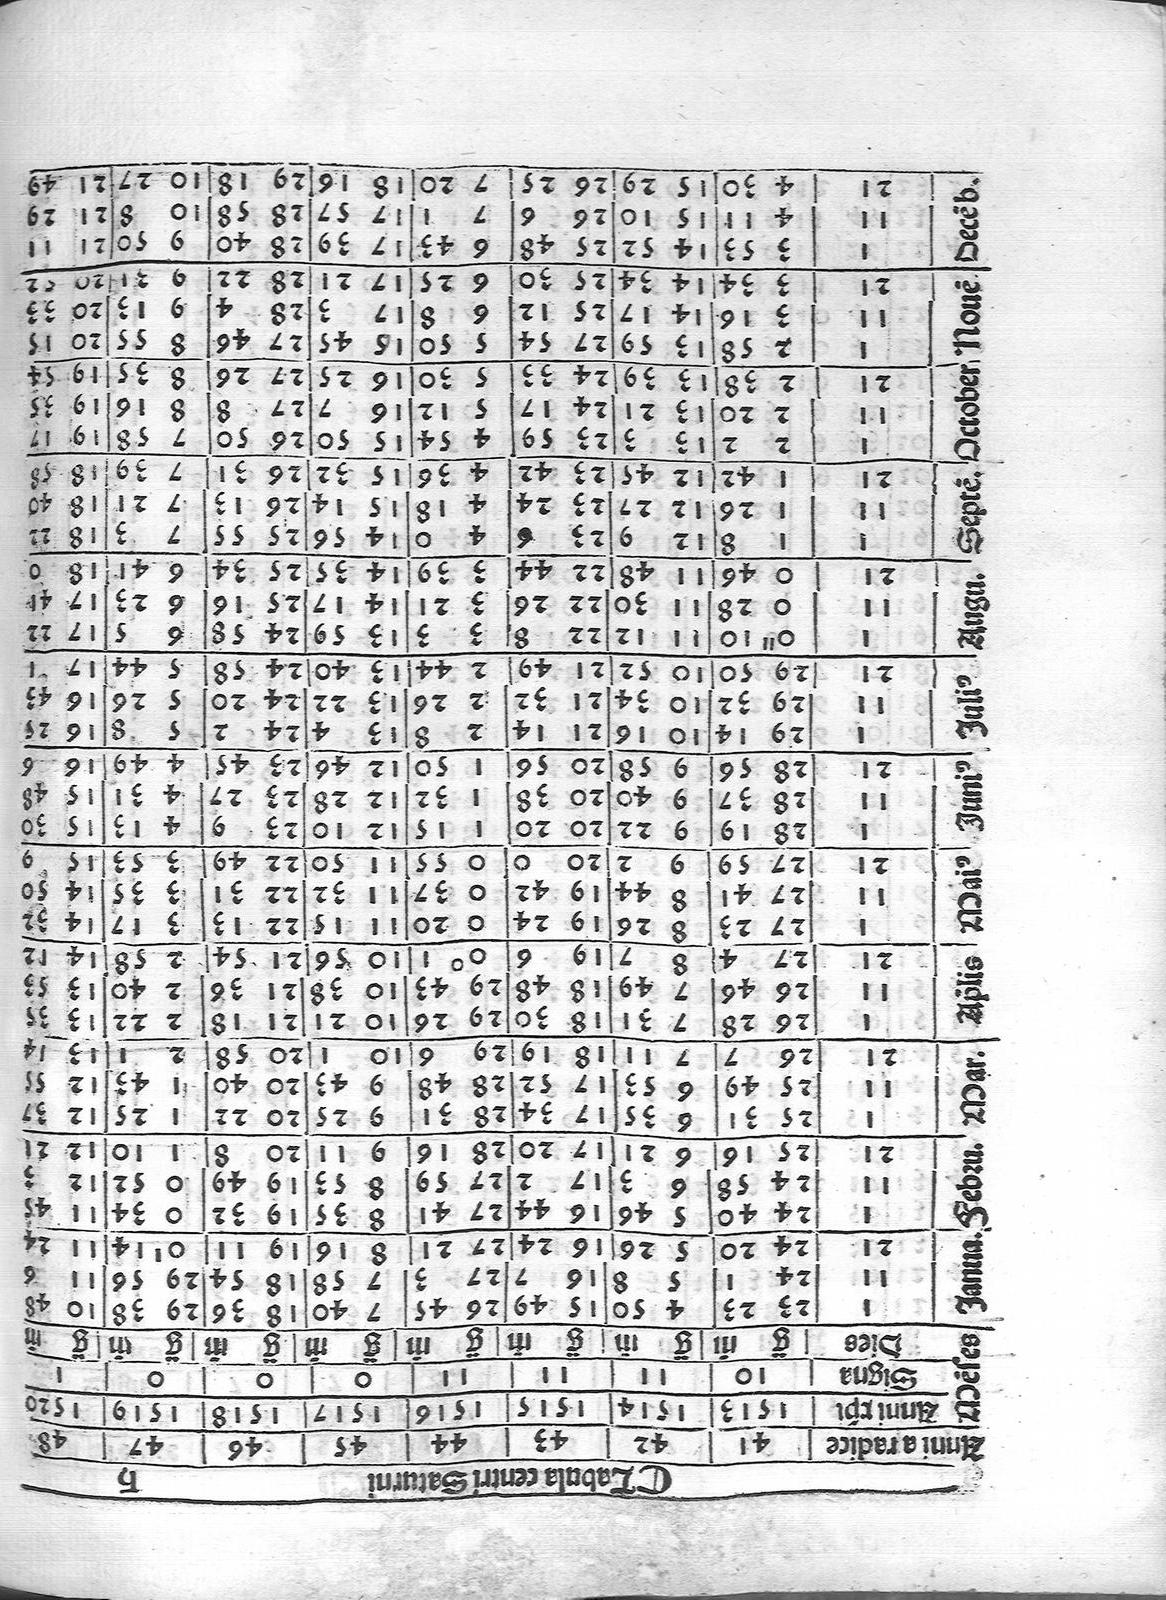 Tabula centri Saturni ♄
Anni a radice 41 42 43 44 45 46 47 48
Anni xpi 1513 1514 1515 1516 1517 1518 1519 1520
Signa 10 11 11 11 0 0 0 1
Mēses Dies g̈ m̄ g̈ m̄ g̈ m̄ g̈ m̄ g̈ m̄ g̈ m̄ g̈ m̄ g̈ m̄
Janua. 1 23 23 4 50 15 49 26 45 7 40 18 36 29 38 10 48
11 24 1 5 8 16 7 27 3 7 58 18 54 29 56 11 6
21 24 20 5 26 16 24 27 21 8 16 19 11 0 14 11 24
Febru. 1 24 40 5 46 16 44 27 41 8 35 19 32 0 34 11 45
11 24 58 6 3 17 2 27 59 8 53 19 49 0 52 12 3
21 25 16 6 21 17 20 28 16 9 11 20 8 1 10 12 21
Mar. 1 25 31 6 35 17 34 28 31 9 25 20 22 1 25 12 37
11 25 49 6 53 17 52 28 48 9 43 20 40 1 43 12 55
21 26 7 7 11 18 19 29 6 10 1 20 58 2 1 13 14
Ap̄lis 1 26 28 7 31 18 30 29 26 10 21 21 18 2 22 13 35
11 26 46 7 49 18 48 29 43 10 38 21 36 2 40 13 53
21 27 4 8 7 19 6 0 1 10 56 21 54 2 58 14 12
Maiꝰ 1 27 23 8 26 19 24 0 20 11 15 22 13 3 17 14 32
11 27 41 8 44 19 42 0 37 11 32 22 31 3 35 14 50
21 27 59 9 2 20 0 0 55 11 50 22 49 3 53 15 9
Juniꝰ 1 28 19 9 22 20 20 1 15 12 10 23 9 4 13 15 30
11 28 37 9 40 20 38 1 32 12 28 23 27 4 31 15 48
21 28 56 9 58 20 56 1 50 12 46 23 45 4 49 16 6
Juliꝰ 1 29 14 10 16 21 14 2 8 13 4 24 2 5 8 16 25
11 29 32 10 34 21 32 2 26 13 22 24 20 5 26 16 43
21 29 50 10 52 21 49 2 44 13 40 24 58 5 44 17 1
Augu. 1 0 10 11 12 22 8 3 3 13 59 24 58 6 5 17 22
11 0 28 11 30 22 26 3 21 14 17 25 16 6 23 17 41
21 0 46 11 48 22 44 3 39 14 35 25 34 6 41 18 0
Septē. 1 1 8 12 9 23 6 4 0 14 56 25 55 7 3 18 22
11 1 26 12 27 23 24 4 18 15 14 26 13 7 21 18 40
21 1 42 12 45 23 42 4 36 15 32 26 31 7 39 18 58
October 1 2 2 13 3 23 59 4 54 15 50 26 50 7 58 19 17
11 2 20 13 21 24 17 5 12 16 7 27 8 8 16 19 35
21 2 38 13 39 24 33 5 30 16 25 27 26 8 35 19 54
Nouē. 1 2 58 13 59 27 54 5 50 15 45 27 46 8 55 20 15
11 3 16 14 17 25 12 6 8 17 3 28 4 9 13 20 33
21 3 34 14 34 25 30 6 25 17 21 28 22 9 31 20 52
Decēb. 1 3 53 14 52 25 48 6 43 17 39 28 40 9 50 21 11
11 4 11 15 10 26 6 7 1 17 57 28 58 10 8 21 29
21 4 30 15 29 26 25 7 20 18 16 29 18 10 27 21 49